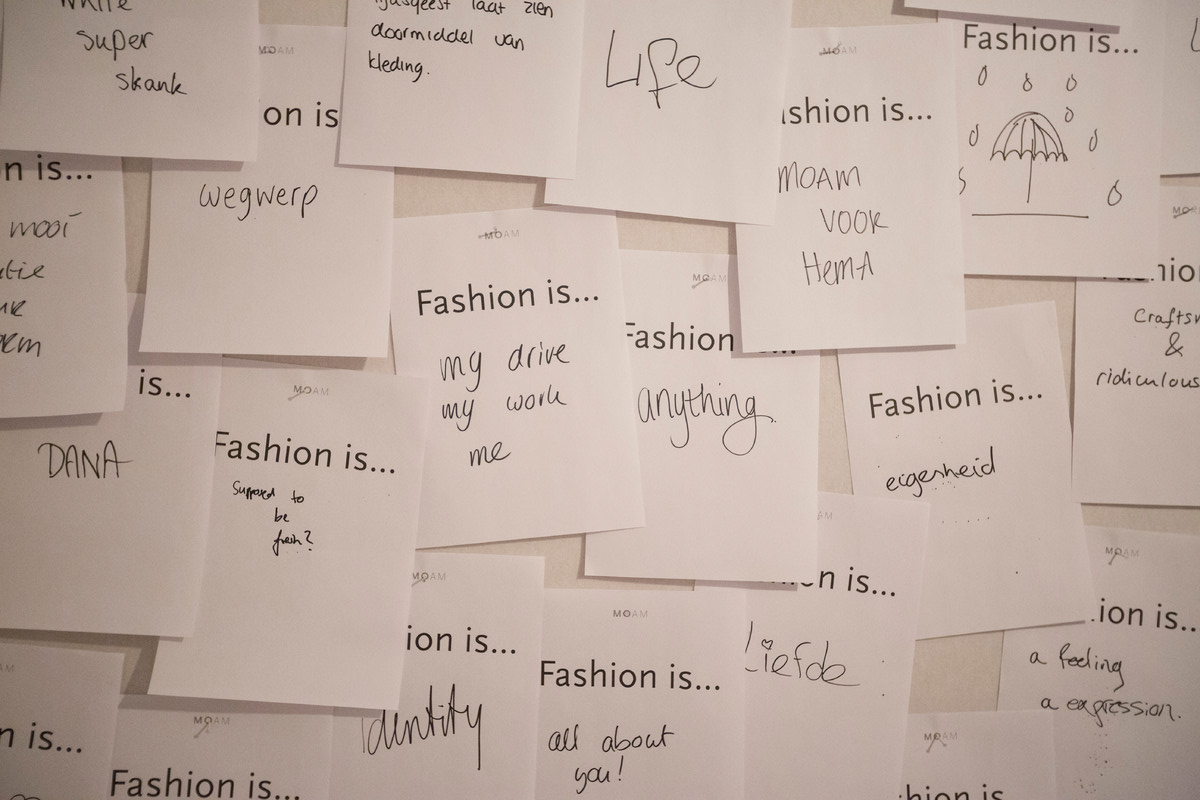 super
skank
laat zien
doormiddel van
kleding.
Life
Fashion is...
MOAM
on is
wegwerp
MOAM
ashion is...
MOAM
VOOR
HEMA
n is...
mooi
MOAM
Fashion is...
my drive
my work
me
MOAM
Fashion
anything.
Craftsw
&
ridiculous
Fashion is...
eigenheid
is...
DANA
MOAM
Fashion is...
Supposed to
be
fresh?
MOAM
ion is...
identity
MOAM
Fashion is...
all about
you!
AM
n is...
Liefde
MOAM
ion is...
a feeling
a expression.
n is...
MOAM
Fashion is...
MOAM
hion is